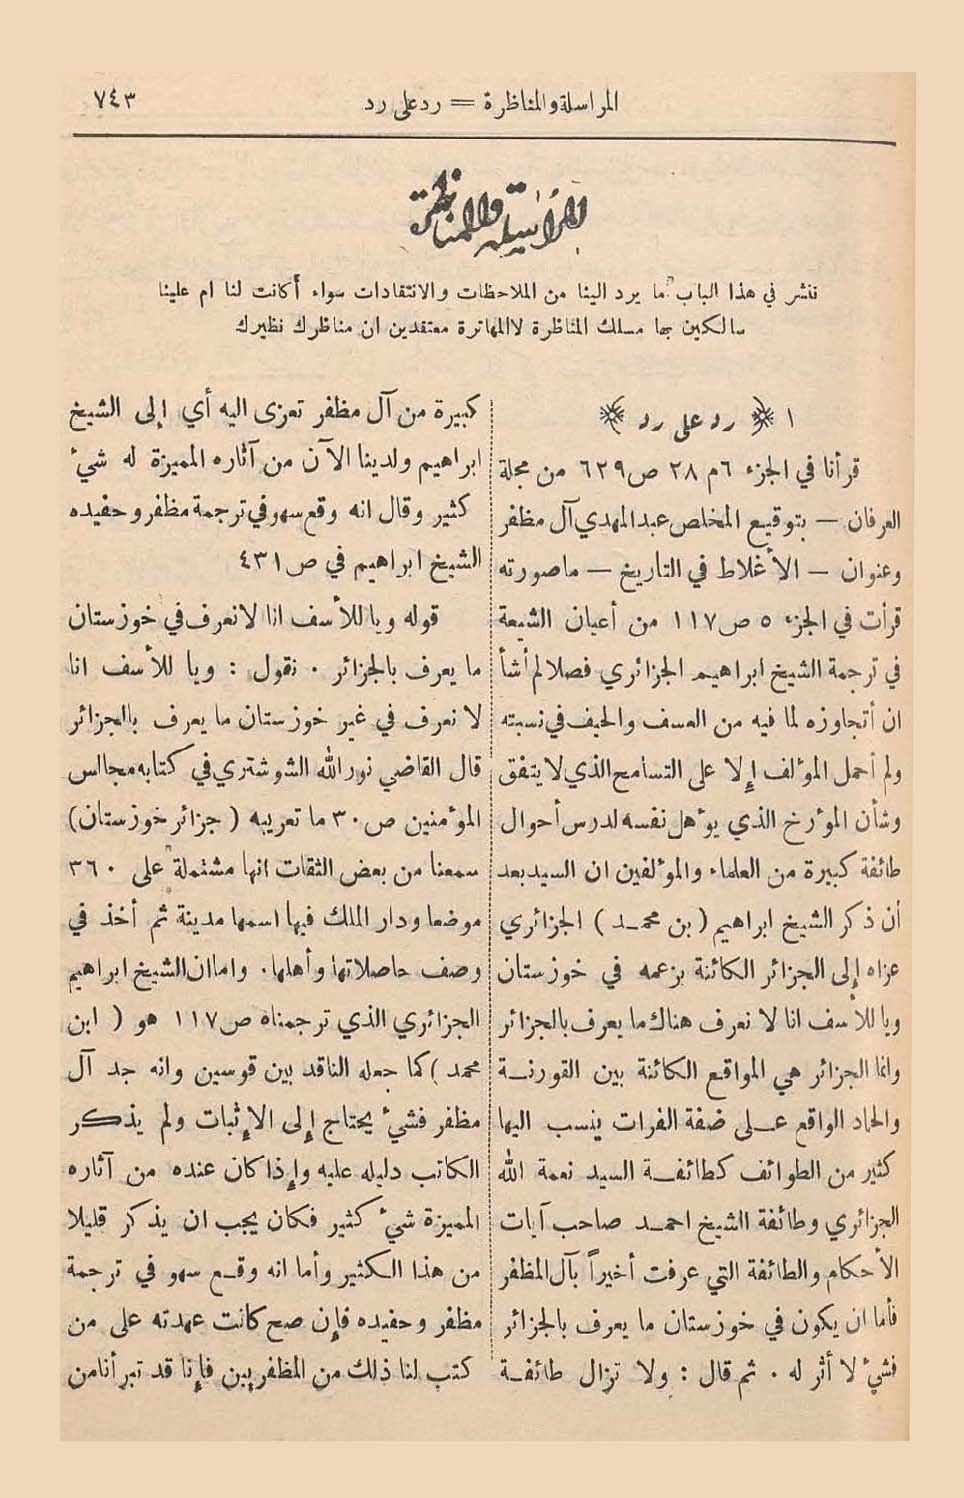 المراسلة والمناظرة = رد على رد
٧٤٣
المراسلة والمناظرة
ننشر في هذا الباب ما يرد الينا من الملاحظات والانتقادات سواء أكانت لنا ام علينا
سالكين بها مسلك المناظرة لا المهاترة معتقدين ان مناظرك نظيرك
١ ﴿ رد على رد ﴾
قرأنا في الجزء ٦ م ٢٨ ص ٦٢٩ من مجلة
العرفان — بتوقيع المخلص عبد المهدي آل مظفر
وعنوان — الأغلاط في التاريخ — ما صورته
قرأت في الجزء ٥ ص ١١٧ من أعيان الشيعة
في ترجمة الشيخ ابراهيم الجزائري فصلا لم أشأ
ان أتجاوزه لما فيه من العسف والحيف في نسبته
ولم أحمل المؤلف إلا على التسامح الذي لا يتفق
وشأن المؤرخ الذي يؤهل نفسه لدرس أحوال
طائفة كبيرة من العلماء والمؤلفين ان السيد بعد
أن ذكر الشيخ ابراهيم ( بن محمد ) الجزائري
عزاه إلى الجزائر الكائنة بزعمه في خوزستان
ويا للأسف انا لا نعرف هناك ما يعرف بالجزائر
وانما الجزائر هي المواقع الكائنة بين القورنة
والحماد الواقع على ضفة الفرات ينسب اليها
كثير من الطوائف كطائفة السيد نعمة الله
الجزائري وطائفة الشيخ احمد صاحب آيات
الأحكام والطائفة التي عرفت أخيراً بآل المظفر
فأما ان يكون في خوزستان ما يعرف بالجزائر
فشيء لا أثر له . ثم قال : ولا تزال طائفة
كبيرة من آل مظفر تعزى اليه أي إلى الشيخ
ابراهيم ولدينا الآن من آثاره المميزة له شيء
كثير وقال انه وقع سهو في ترجمة مظفر وحفيده
الشيخ ابراهيم في ص ٤٣١
قوله ويا للأسف انا لا نعرف في خوزستان
ما يعرف بالجزائر . نقول : ويا للأسف انا
لا نعرف في غير خوزستان ما يعرف بالجزائر
قال القاضي نور الله الشوشتري في كتابه مجالس
المؤمنين ص ٣٠ ما تعريبه ( جزائر خوزستان )
سمعنا من بعض الثقات انها مشتملة على ٣٦٠
موضعا ودار الملك فيها اسمها مدينة ثم أخذ في
وصف حاصلاتها وأهلها . واما ان الشيخ ابراهيم
الجزائري الذي ترجمناه ص ١١٧ هو ( ابن
محمد ) كما جعله الناقد بين قوسين وانه جد آل
مظفر فشيء يحتاج إلى الإثبات ولم يذكر
الكاتب دليله عليه وإذا كان عنده من آثاره
المميزة شيء كثير فكان يجب ان يذكر قليلا
من هذا الكثير وأما انه وقع سهو في ترجمة
مظفر وحفيده فإن صح كانت عهدته على من
كتب لنا ذلك من المظفريين فإنا قد تبرأنا من